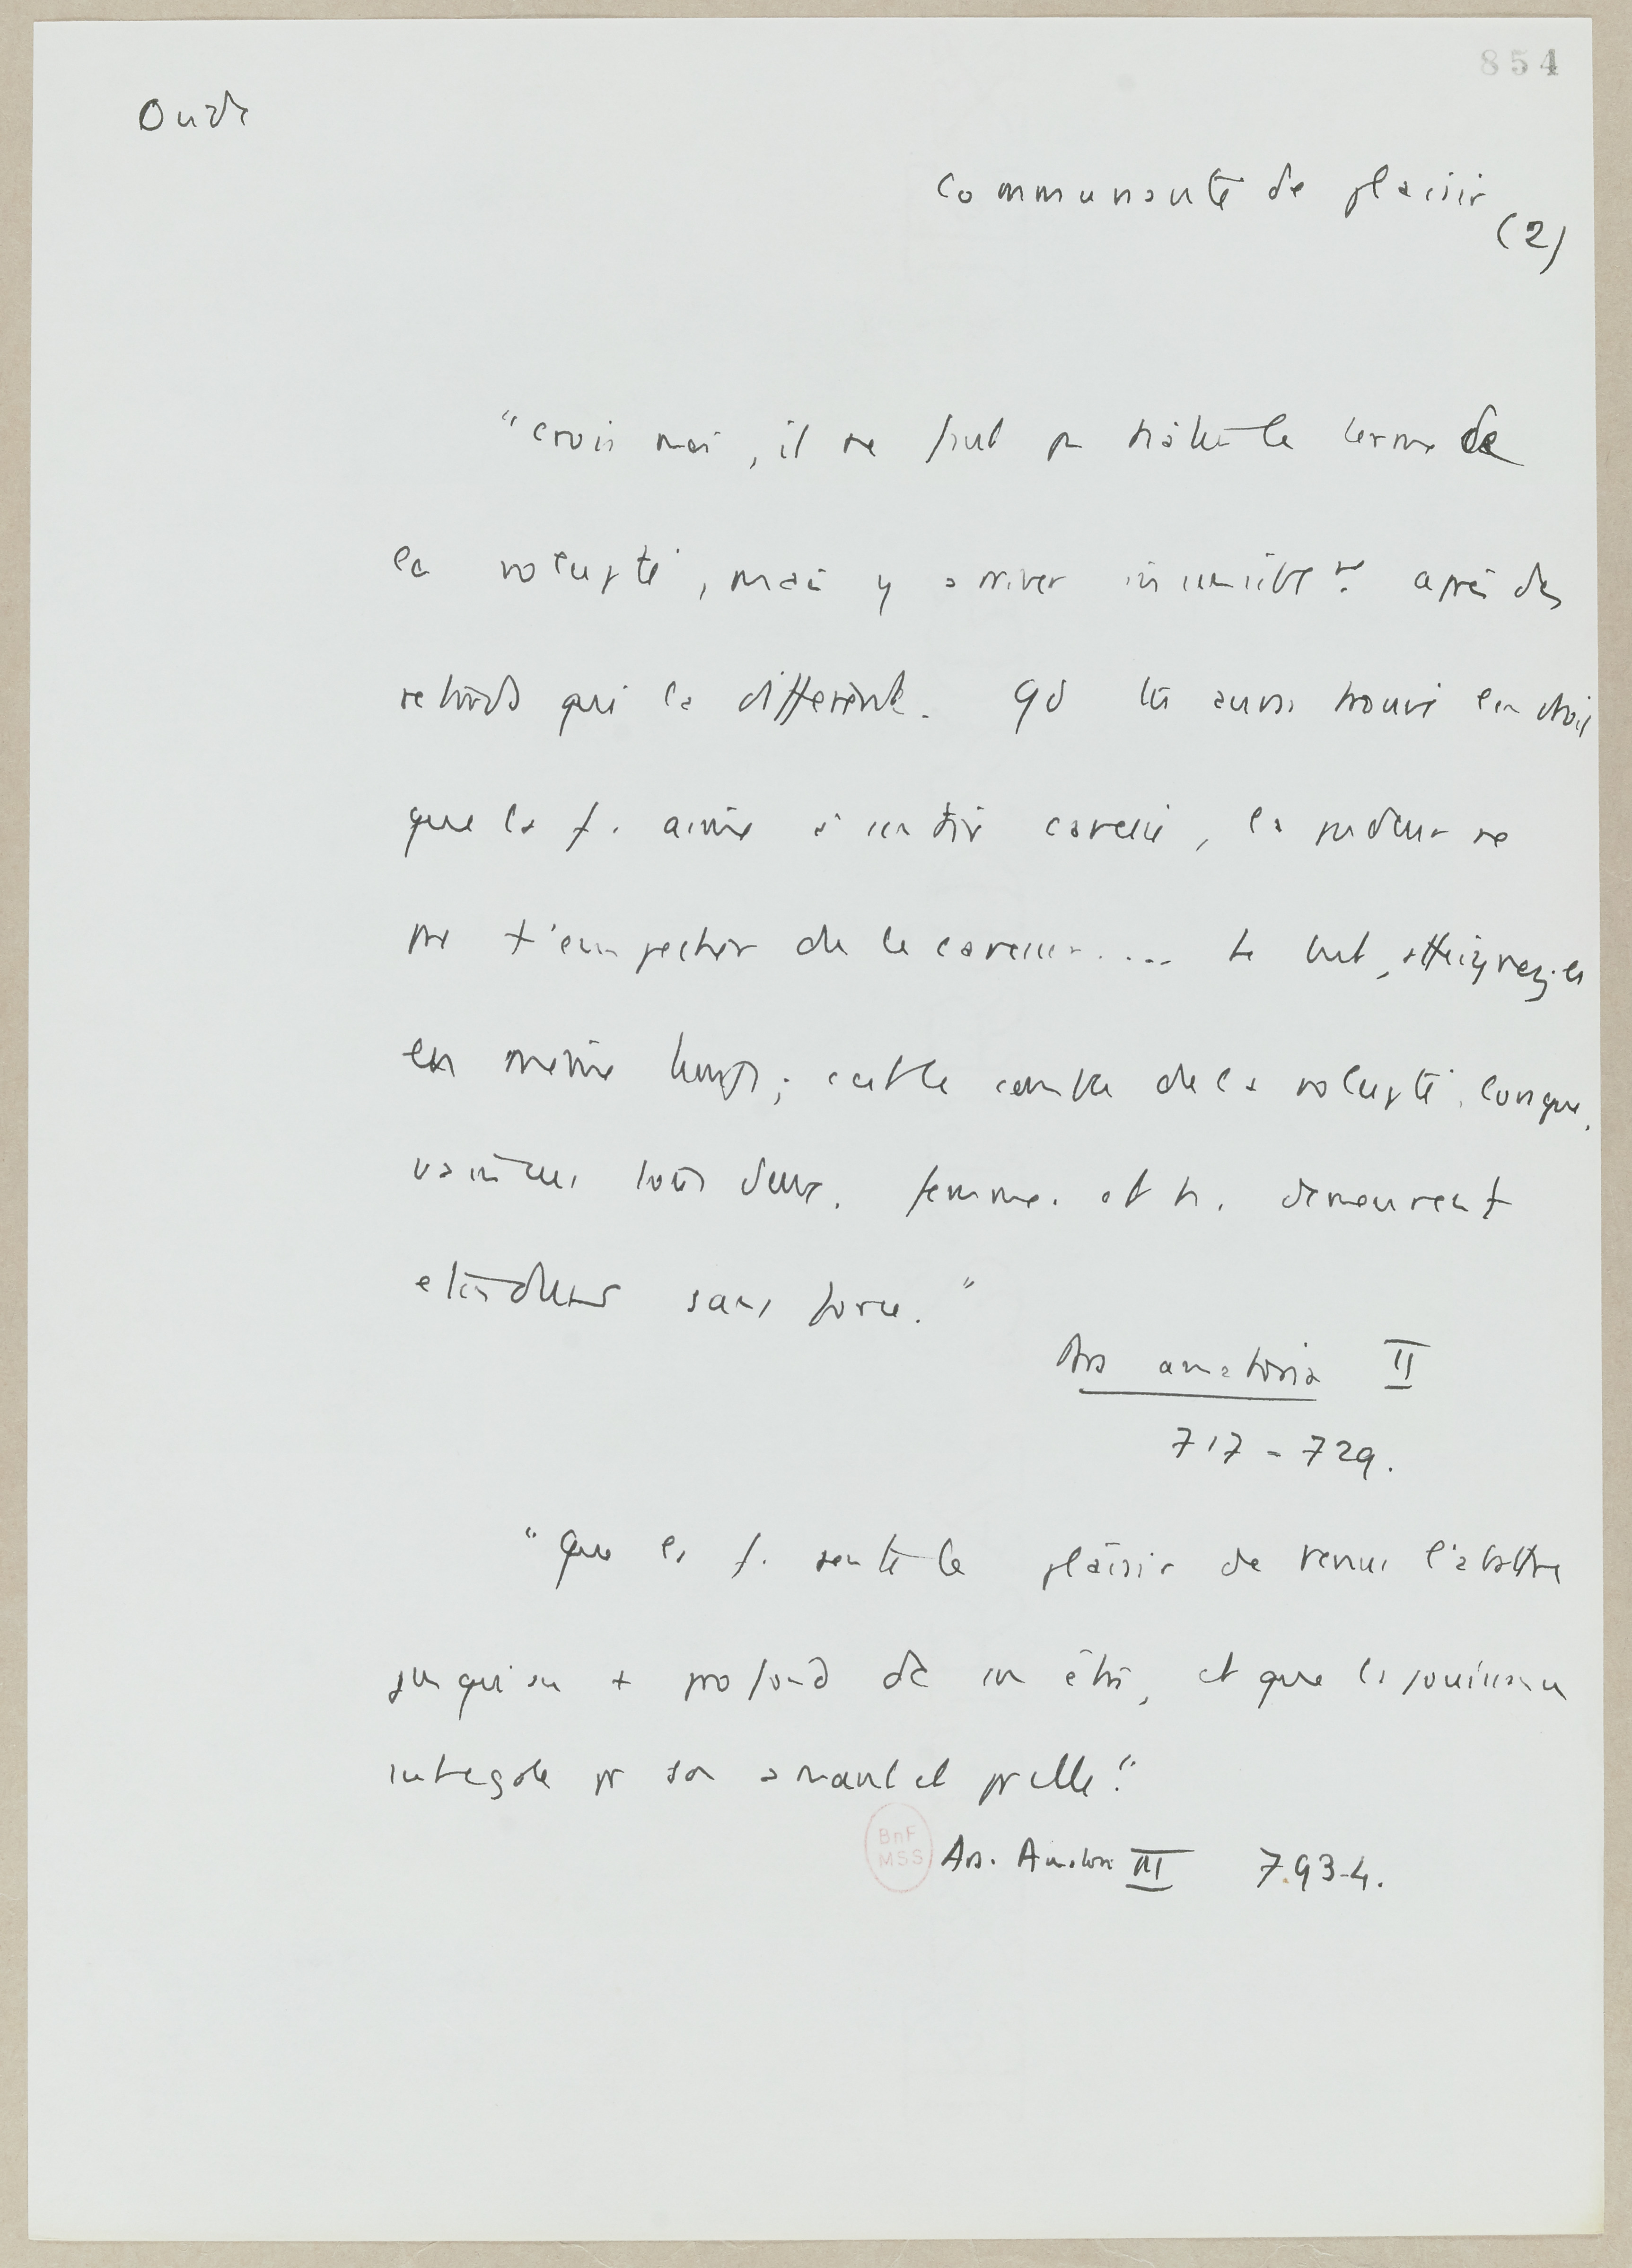 854
Ovide
Communauté de plaisir
(2)
"Crois moi, il ne faut pas hâter le terme de
la volupté, mais y arriver insensiblemt après des
retards qui la diffèrent. Qd tu auras trouvé l'endroit
que la f. aime à sentir caressé, la pudeur ne
pas t'empecher de le caresser.... Le but, atteignez-le
en même temps; c'est le comble de la volupté, lorsque,
vaincus tous deux, femme et h. demeurent
etendus sans force."
Ars amatoria II
717-729.
"Que la f. sente le plaisir de Venus l'abattre
jusqu'au + profond de son être, et que la jouissance
soit egale pr son amant et pr elle."
BnF
MSS
Ars. Amatoria III 793-4.